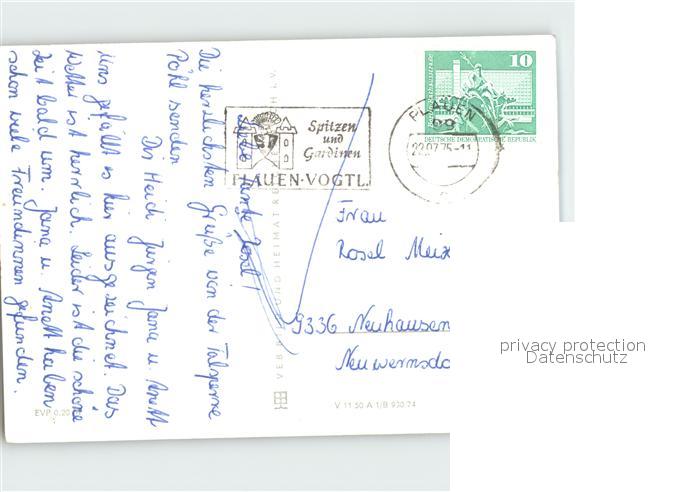 Liebe Tante Rosel!
Die herzlichsten Grüße von der Talsperre
Pöhl senden
Dir Heidi Jürgen Jana u. Anett
Uns gefällt es hier ausgezeichnet. Das
Wetter ist herrlich. Leider ist die schöne
Zeit bald um. Jana u. Anett haben
schon viele Freundinnen gefunden.
EVP 0,20
Spitzen
und
Gardinen
PLAUEN·VOGTL.
PLAUEN
99
22.07.75-11
10
DEUTSCHE DEMOKRATISCHE REPUBLIK
Frau
Rosel Meix
9336 Neuhausen
Neuwernsdo
V 11 50 A 1/B 930/74
privacy protection
Datenschutz